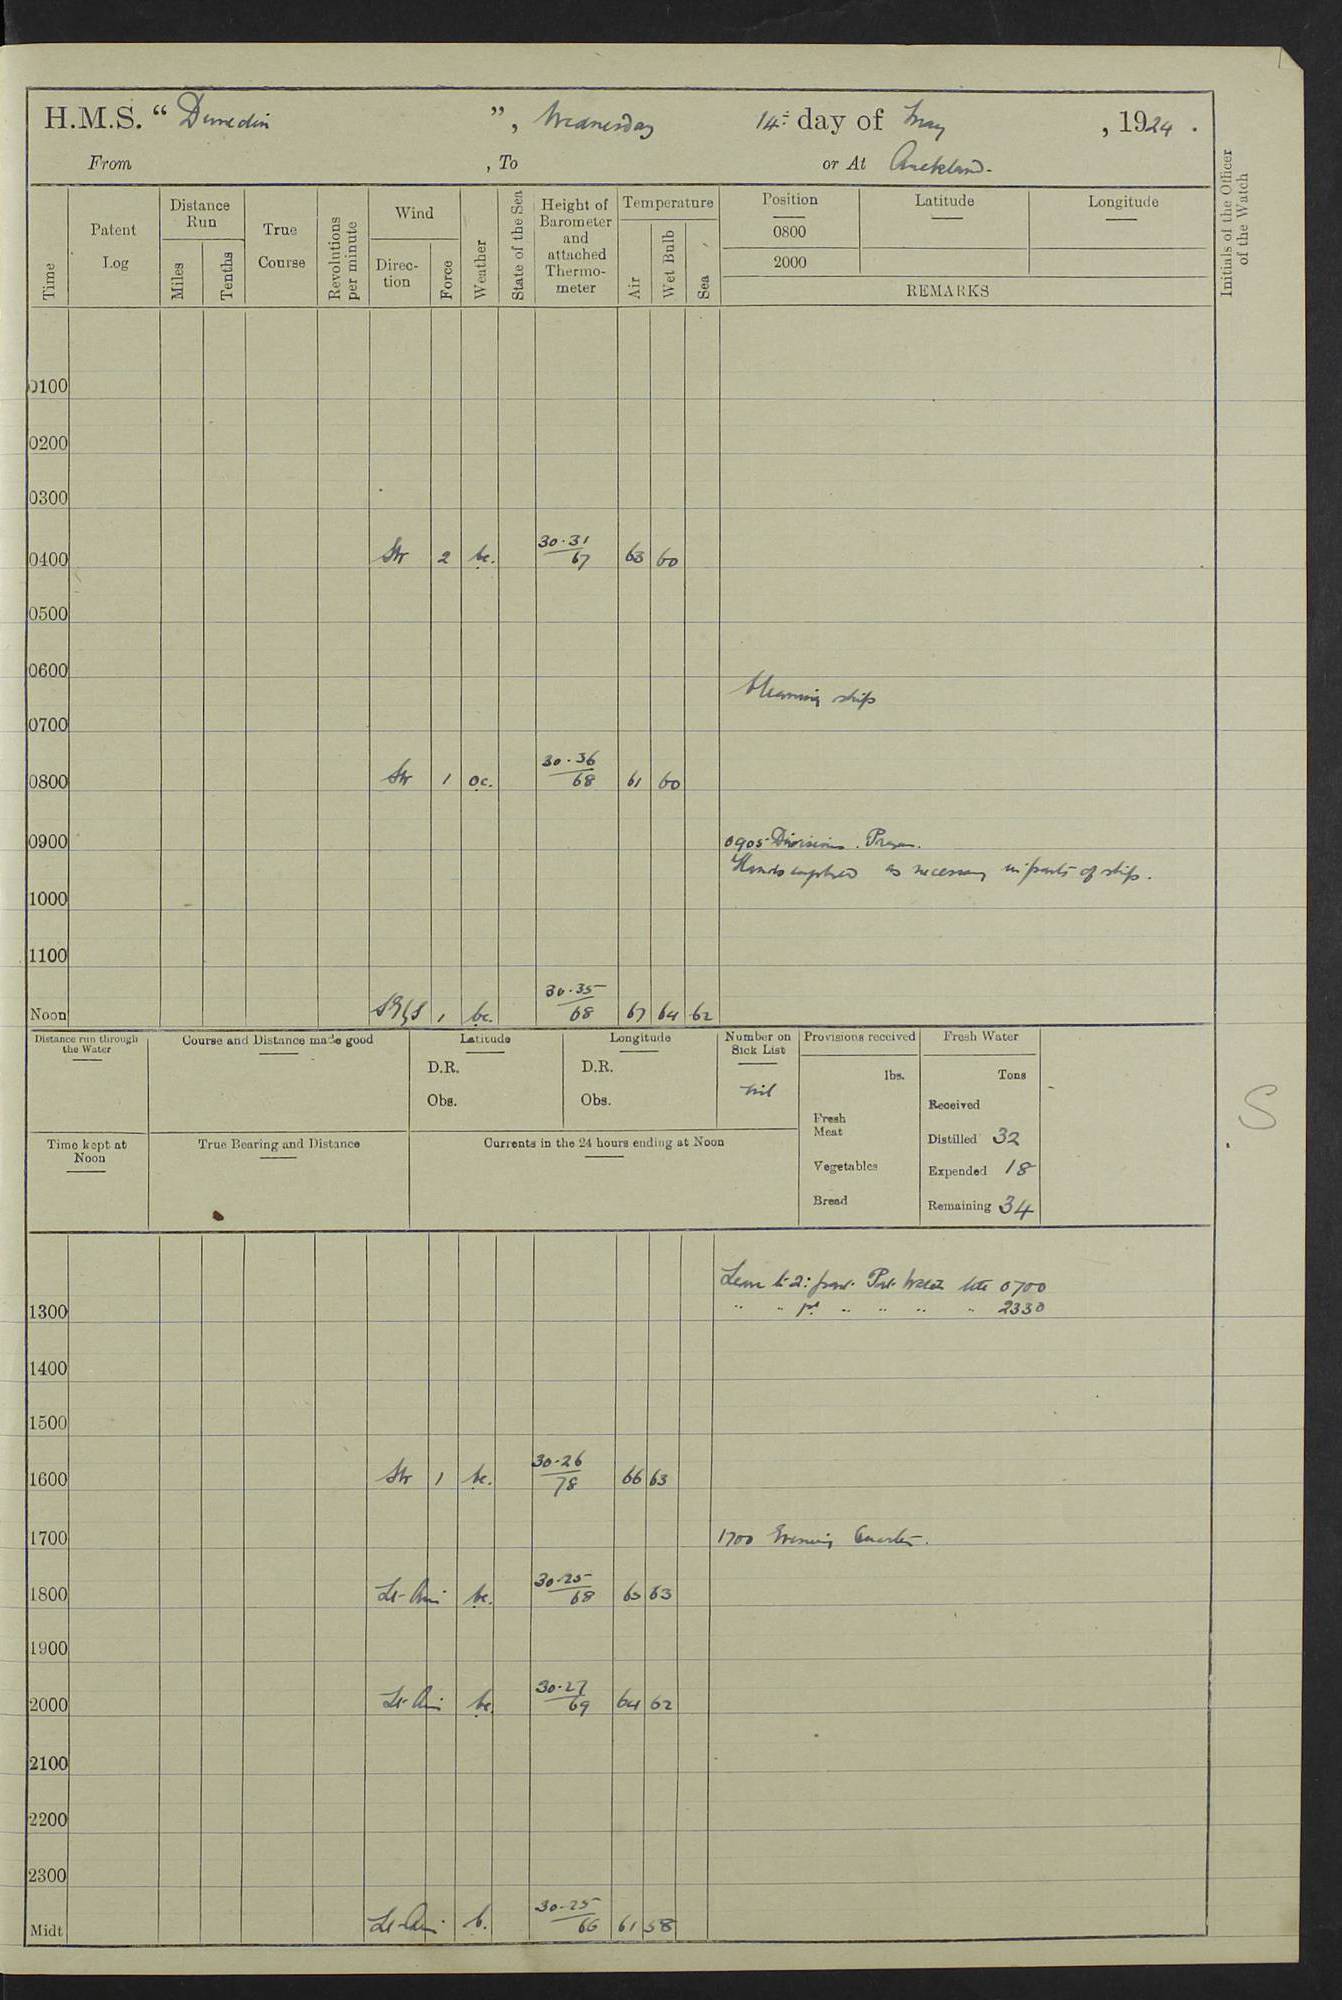 H.M.S. “ Dunedin ”, Wednesday 14th day of May, 1924.
From , To or At Auckland.
Time
Patent Log
Distance Run
Miles
Tenths
True Course
Revolutions per minute
Wind
Direc-tion
Force
Weather
State of the Sea
Height of Barometer and attached Thermo-meter
Temperature
Air
Wet Bulb
Sea
Position Latitude Longitude
0800
2000
REMARKS
Initials of the Officer of the Watch
0100
0200
0300
0400 2 bc. 30.31/67 63 60
0500
0600
Cleaning ship
0700
0800 1 oc. 30.36/68 61 60
0900 0905 Divisions. Prayers.
Hands employed as necessary in parts of ship.
1000
1100
Noon 1 bc. 30.35/68 67 64 62
Distance run through the Water
Course and Distance made good
Latitude
D.R.
Obs.
Longitude
D.R.
Obs.
Number on Sick List
nil
Provisions received
lbs.
Fresh Meat
Vegetables
Bread
Fresh Water
Tons
Received
Distilled 32
Expended 18
Remaining 34
Time kept at Noon
True Bearing and Distance
Currents in the 24 hours ending at Noon
S
Leave to 2: part Watch 0700
1300 " " 1st " " " " 2330
1400
1500
1600 1 bc. 30.26/78 66 63
1700 1700 Evening Quarters.
1800 Lt. Airs bc. 30.25/68 65 63
1900
2000 Lt. Airs bc. 30.27/69 64 62
2100
2200
2300
Midt Lt. Airs b. 30.25/66 61 58